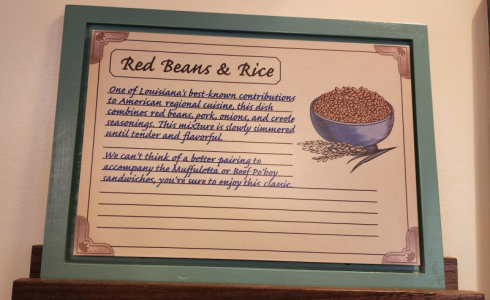 Red Beans & Rice
One of Louisiana's best-known contributions
to American regional cuisine, this dish
combines red beans, pork, onions, and creole
seasonings. This mixture is slowly simmered
until tender and flavorful.
We can't think of a better pairing to
accompany the Muffuletta or Beef Po'boy
sandwiches, you're sure to enjoy this classic.